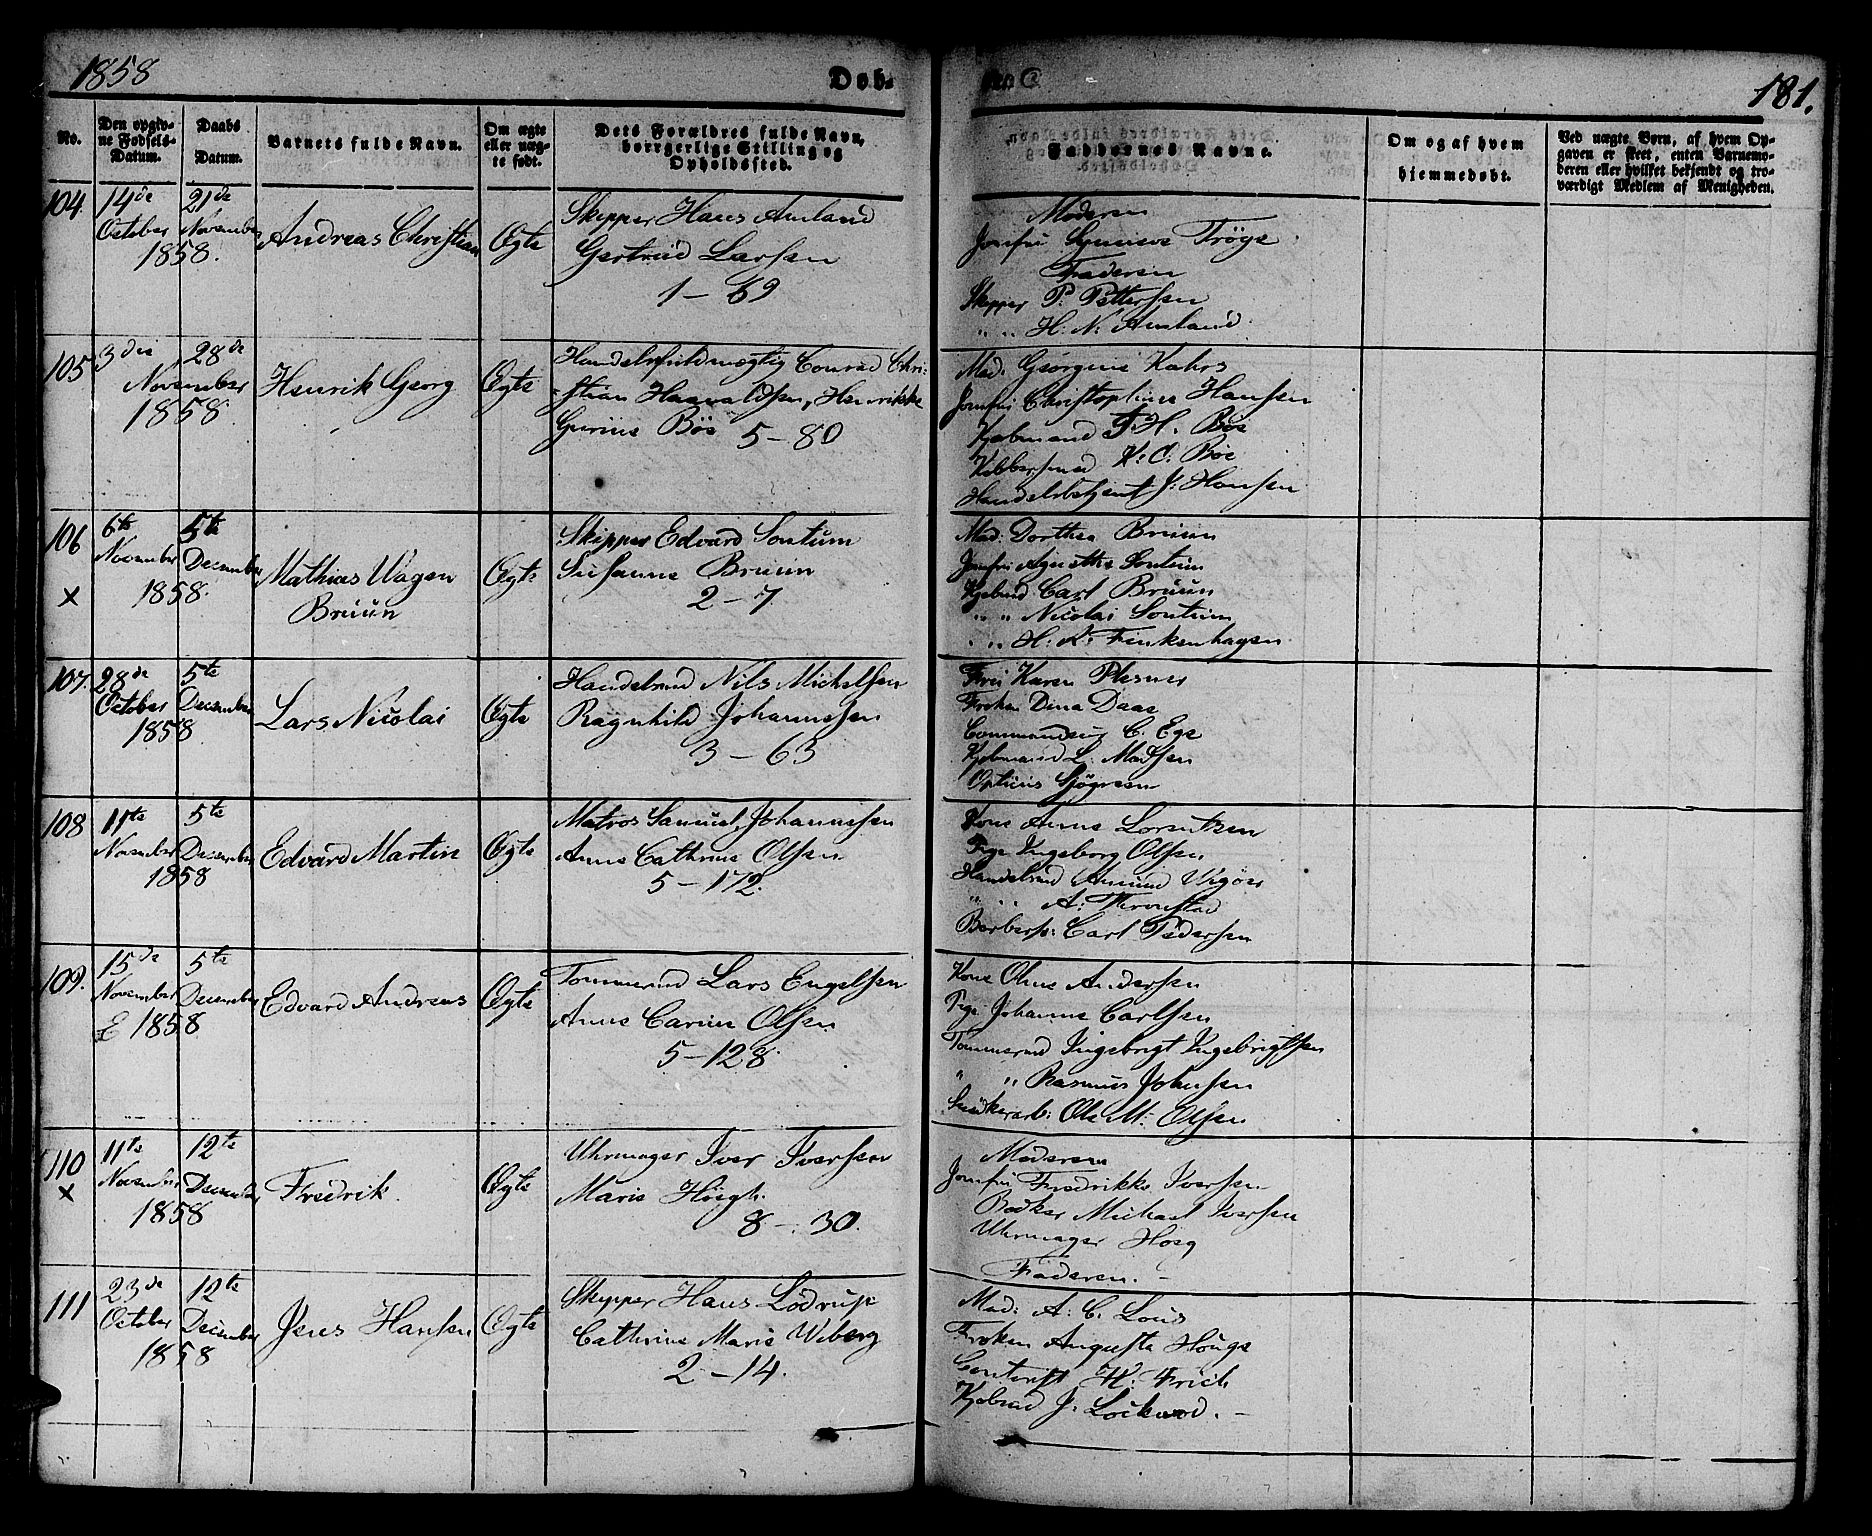 1858
Døb-
181.
No.
Den opgiv-
ne Fødsels-
Datum.
Daabs
Datum.
Barnets fulde Navn.
Om ægte
eller uæg-
te født.
Dets Forældres fulde Navn,
borgerlige Stilling og
Opholdssted.
Faddernes Navne.
Om og af hvem
hjemmedøbt.
Ved uægte Børn, af hvem Op-
gaven er skeet, enten Barnemo-
deren eller hvilket bekjendt og tro-
værdigt Medlem af Menigheden.
104
14de
October
21de
November
1858.
Andreas Christian
Ægte
Skipper Hans Amland
Gertrüd Larsen
1 - 69
Moderen
Jomfrü Tröge
Faderen
Skipper P. Pettersen
" " H. N. Amland.
105
3die
28de
November
1858.
Henrik Georg
Ægte
Handelsfuldmægtig Conrad Chri-
stian Haavaldsen, Henrikke
Gurine Böe 5-80
Mad. Georgine Kahrs
Jomfrü Christophine Hansen
Kjøbmand H. Böe
Kobbersmed K. C. Böe
Handelsbetjent J. Hansen
106
×
6te
November
5te
December
1858.
Mathias Wagen
Brüün
Ægte
Skipper Edvard Sontum
Susanne Brüün
2-7
Mad: Dorthea Brüün
Jomfrü Agnethe Sontum
Kjøbmd Carl Brüün
" " Nicolai Sontum
" " H. K. Finkenhagen
107.
28de
October
5te
December
1858
Lars Nicolai
Ægte
Handelsmd Nils Michelsen
Ragnhild Johannessen
3 - 63
Frü Karen Plesner
Frøken Dina Daae
C. Ege
Kjøbmand L. Madsen
Opticus Sjögreen
108
11te
November
5te
December
1858
Edvard Martin
Ægte
Matros Samuel Johannessen
Anne Cathrine Olsen
5-172.
Kone Anne Lorentzen
Pige Ingeborg Olsen
Handelsmd Amund Vigör
" " A. Thronstad
Barbersv: Carl Pedersen
109.
15de
November
5te
December
1858
Edvard Andreas
Ægte
Tømmermd Lars Engelsen
Anne Carine Olsen
5-128.
Kone Oline Andersen
Pige Johanne Carlsen
Tømmermd Ingebrigt Ingebrigtsen
" " Rasmus Johnsen
Ole M. Olsen
110
×
11te
November
12te
December
1858
Fredrik.
Ægte
Uhrmager Iver Iversen
Marie Höegh.
8 - 30.
Moderen
Jomfrü Fredrikke Iversen
Bødker Michael Iversen
Uhrmager Høeg
Faderen. -
111
23de
October
12te
December
1858
Jens Hansen
Ægte
Skipper Hans Lödrup
Cathrine Marie Wiberg
2-14.
Mad: A. C. Lous
Frøken Augusta Houge
H. Frich
Kjøbmd J. Lockwood. -